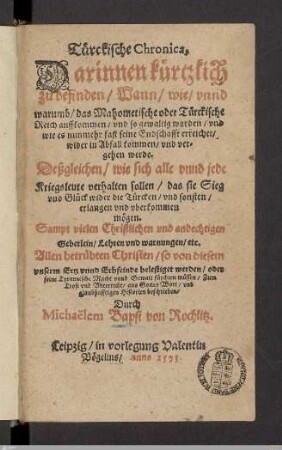 Türckische Chronica,
Darinnen kürtzlich
zubefinden/ Wann/ wie/ vnnd
warumb/ das Mahometische oder Türckische
Reich auffkommen/ vnd so gewaltig worden/ vnd
wie es nunmehr fast seine Endschafft erreichet/
wider in Abfall kommen/ vnd ver-
gehen werde.
Deßgleichen/ wie sich alle vnnd jede
Kriegsleute verhalten sollen/ das sie Sieg
vnd Glück wider die Türcken/ vnd sonsten/
erlangen vnd vberkommen
mögen.
Sampt vielen Christlichen vnd andechtigen
Gebetlein/ Lehren vnd warnungen/ etc.
Allen betrübten Christen/ so von diesem
vnserm Ertz vnnd Erbfeinde belestiget werden/ oder
seine Macht vnnd Gewalt fürchten müssen/ Zum
Trost vnd Vnterricht/ aus Gottes Wort/ vnd
glaubhafftigen Historien beschrieben/
Durch
Michaëlem Bapst von Rochlitz.
Leipzig/ in vorlegung Valentin
Vögelins/ anno 1593.